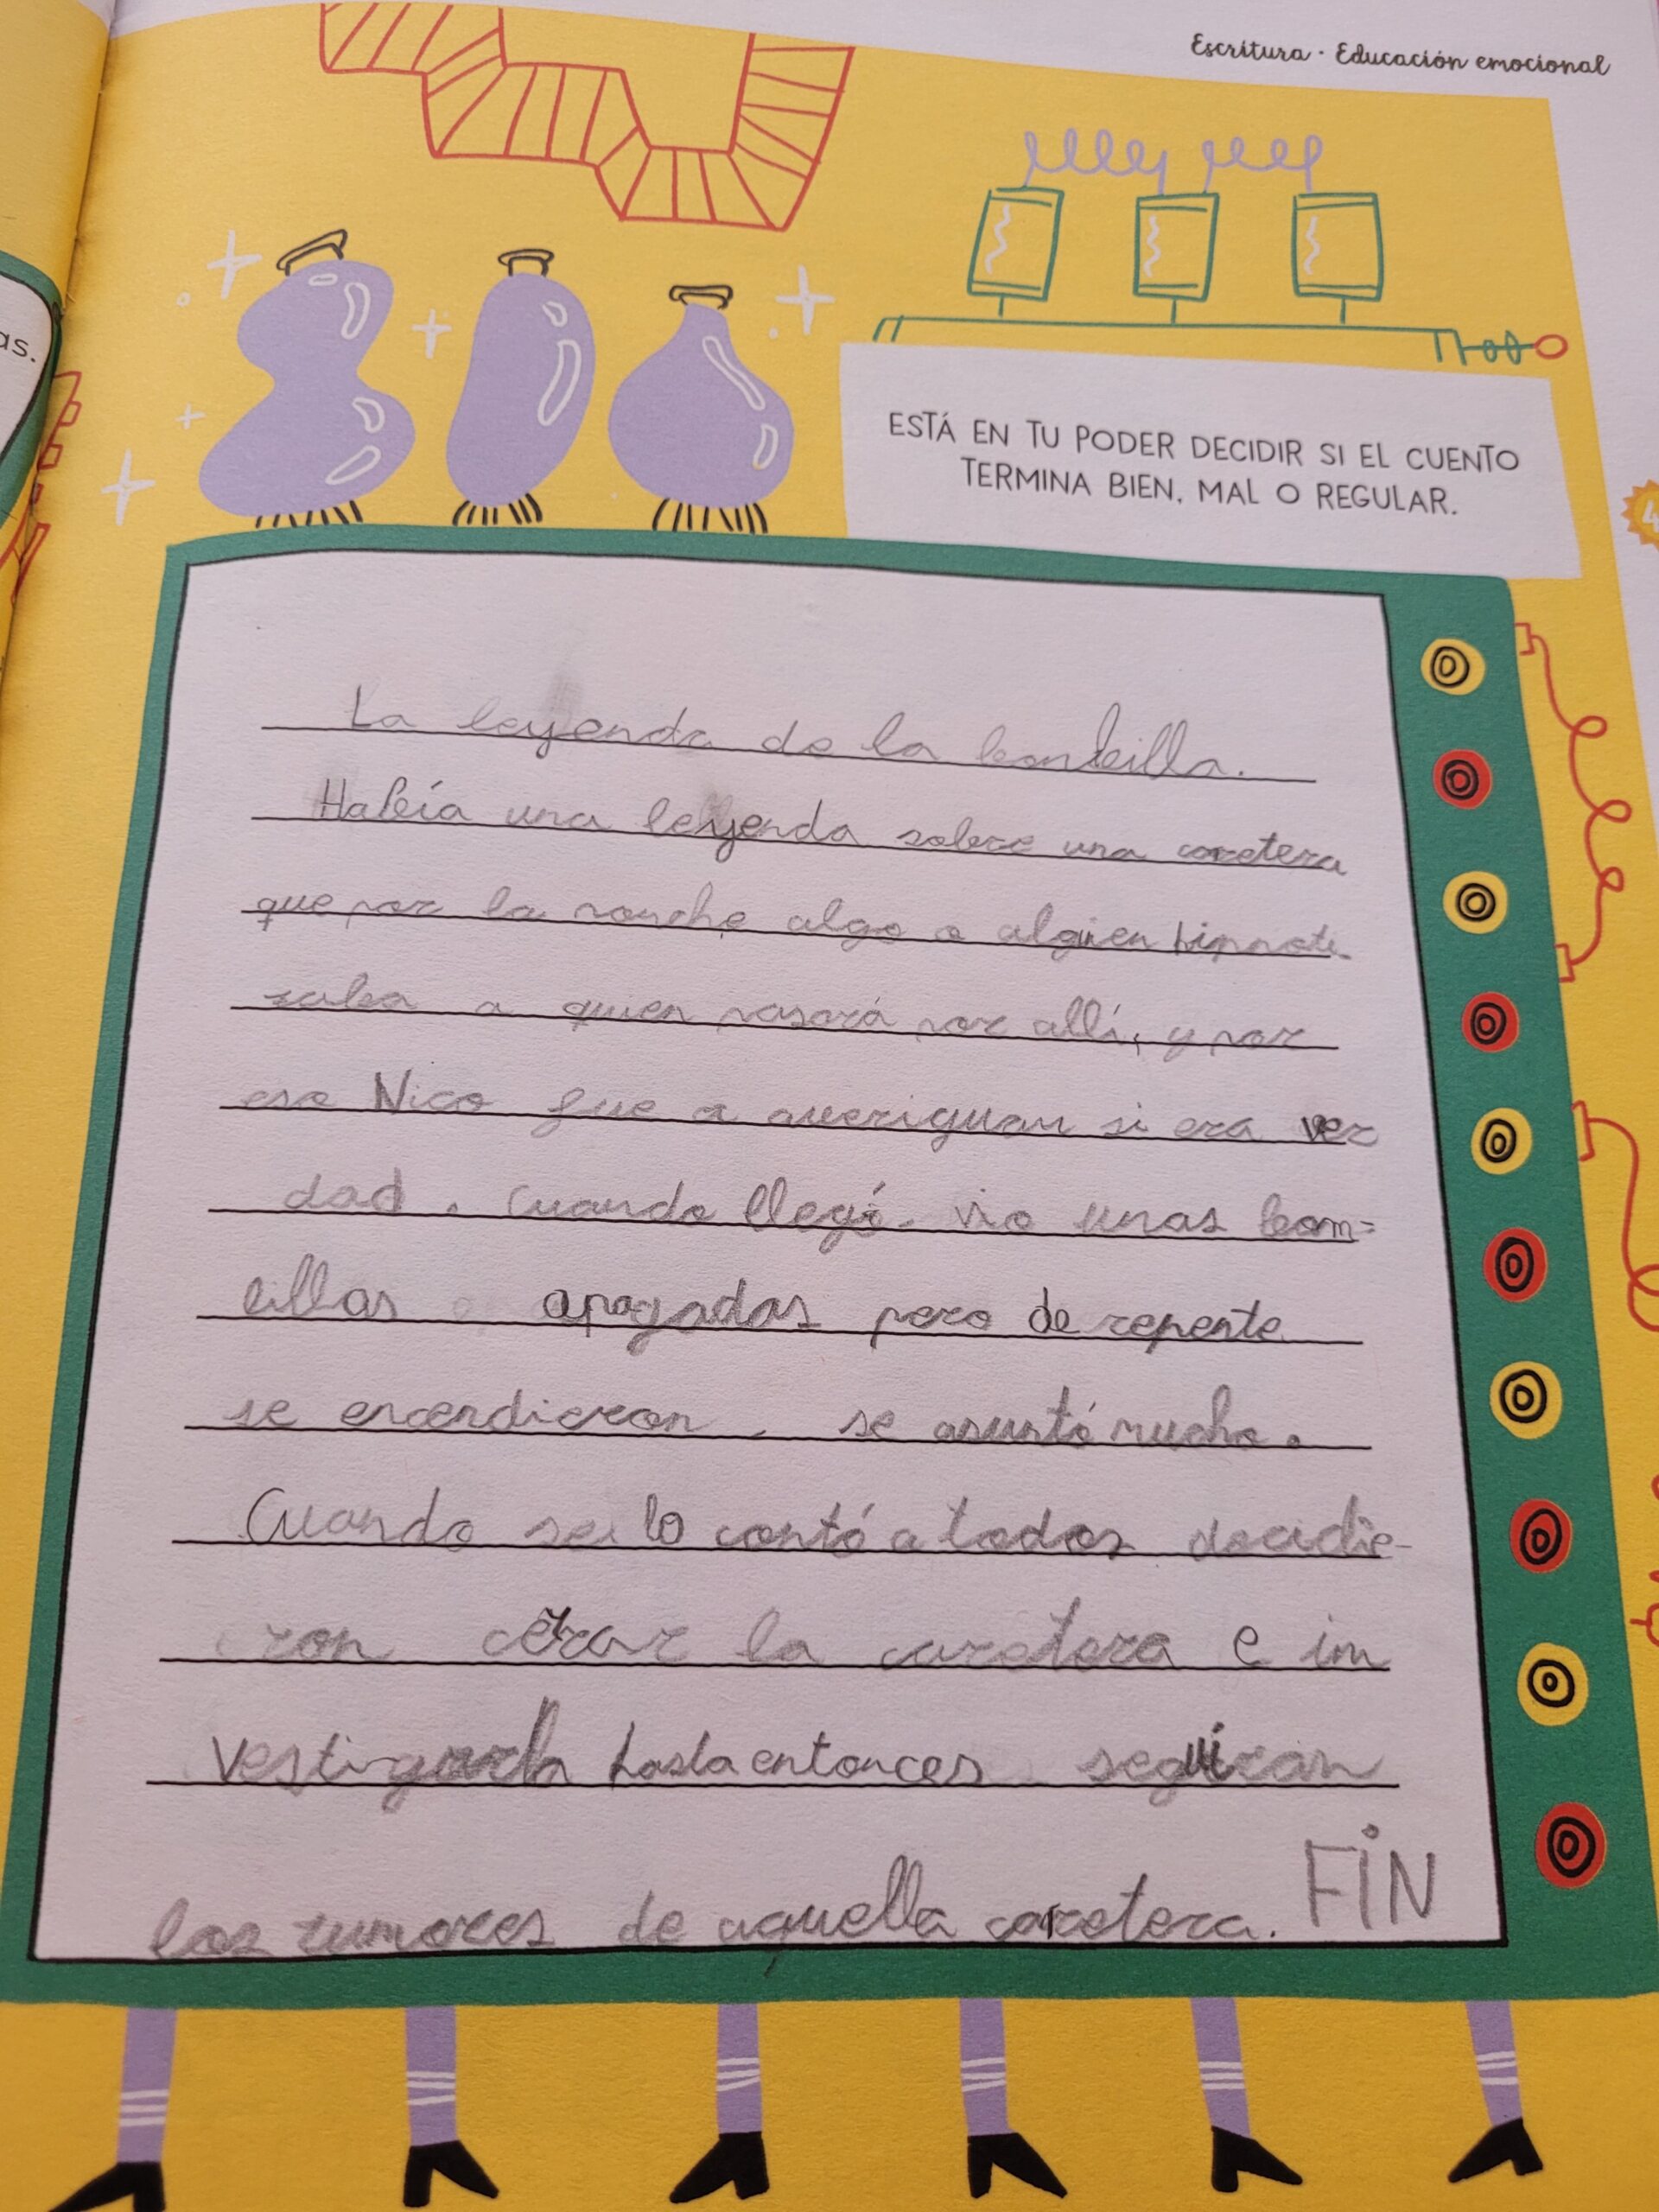 Escritura · Educación emocional
as.
ESTÁ EN TU PODER DECIDIR SI EL CUENTO
TERMINA BIEN, MAL O REGULAR.
4
La leyenda de la bombilla.
Había una leyenda sobre una caretera
que por la nonche algo o alguien hipnoti-
zaba a quien pasará por allí, y por
eso Nico fue a averiguar si era ver
dad. Cuando llegó vio unas bom=
billas apagadas pero de repente
se encendieron, se asustó mucho.
Cuando se lo contó a todos decidie-
ron cerar la caretera e im
vestigarla hasta entonces seguirán
los rumores de aquella caretera. FIN